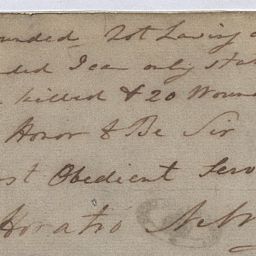 ounded Not having
ded I can only sta
killed & 20 Wound
Honor & Be Sir
st Obedient Serv
Horatio Nels